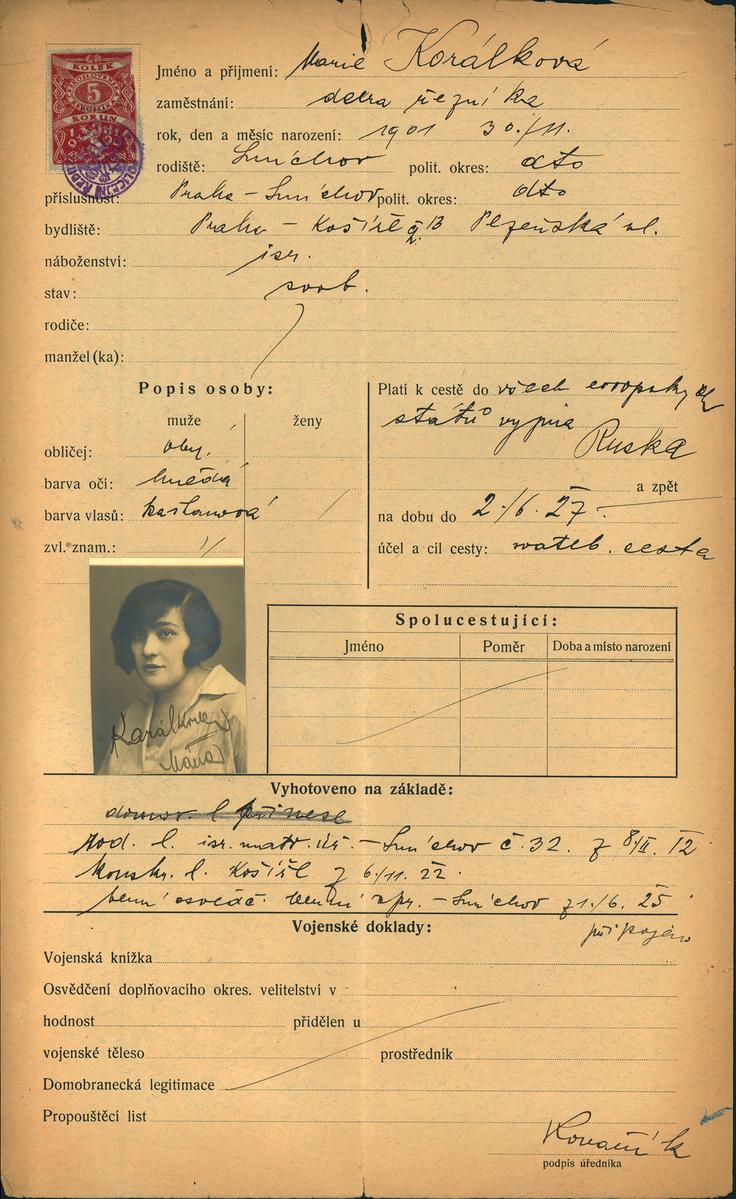 KOLEK
5
KORUN
Jméno a příjmení: Marie Korálková
zaměstnání: dcera řezníka
rok, den a měsíc narození: 1901 30./11.
rodiště: Smíchov polit. okres: dto
příslušnost: Praha – Smíchov polit. okres: dto
bydliště: Praha – Košíře Plzeňská ul.
náboženství: isr.
stav: svob.
rodiče:
manžel (ka):
Popis osoby:
muže ženy
obličej: obyč.
barva očí: hnědá
barva vlasů: kaštanová
zvl. znam.:
Platí k cestě do všech evropských
států vyjma
Ruska
a zpět
na dobu do 2./6. 27.
účel a cíl cesty: cesta
Karálková
Máňa
Spolucestující:
Jméno Poměr Doba a místo narození
Vyhotoveno na základě:
domov. l. přinese
rod. l. isr. matr. úř. – Smíchov č. 32. z 8/II. 12
konskr. l. Košíře z 6/11. 22.
osvědč. – Smíchov z 1./6. 25
připojeno
Vojenské doklady:
Vojenská knížka
Osvědčení doplňovacího okres. velitelství v
hodnost přidělen u
vojenské těleso prostředník
Domobranecká legitimace
Propouštěcí list
podpis úředníka